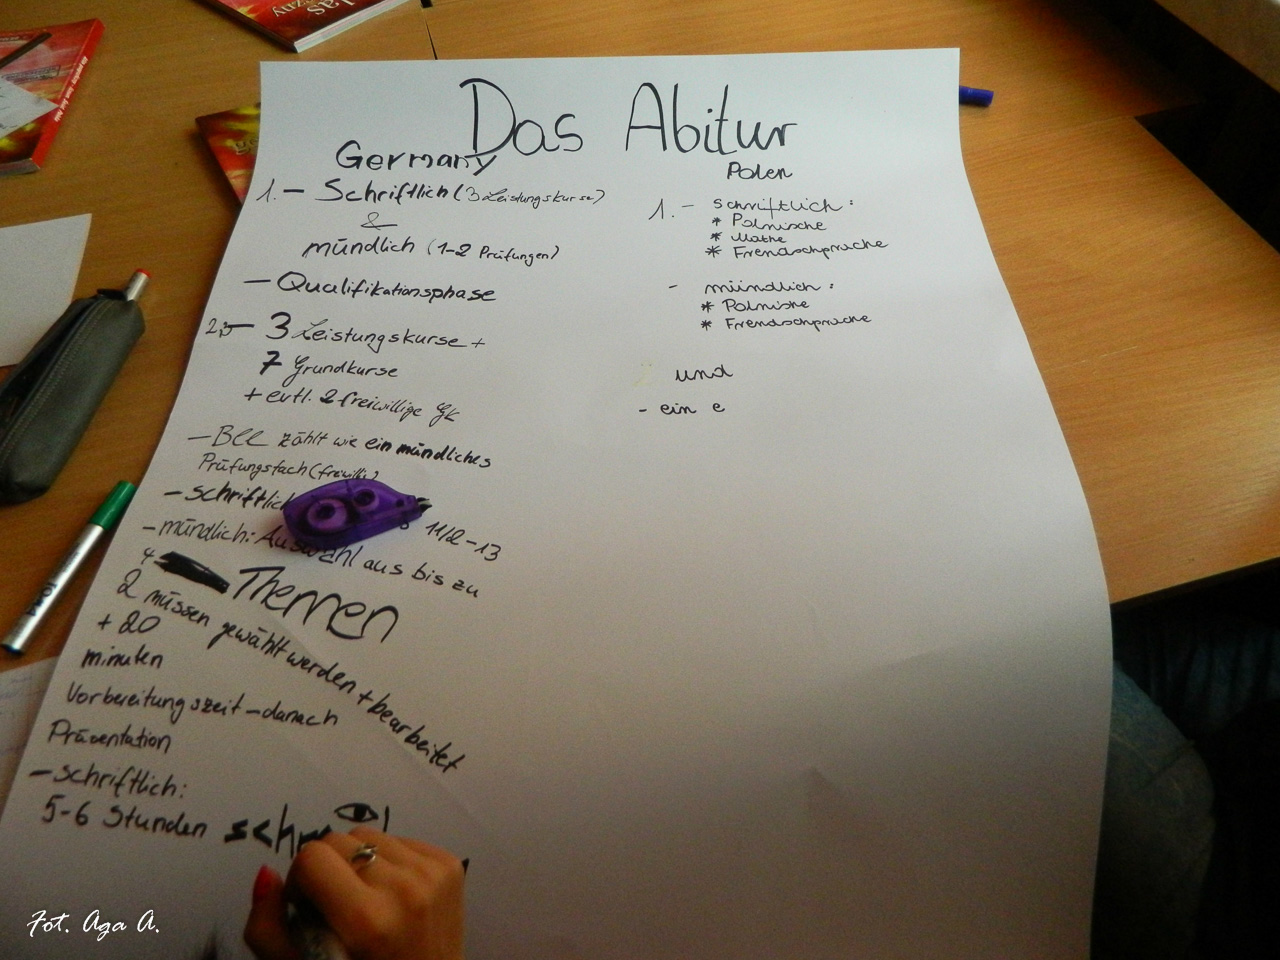 Das Abitur
Germany
1. – Schriftlich (3 Leistungskurse)
&
mündlich (1-2 Prüfungen)
– Qualifikationsphase
2. – 3 Leistungskurse +
7 Grundkurse
+ evtl. 2 freiwillige GK
– BLL zählt wie ein mündliches
Prüfungsfach (freiwilli)
– schriftlich 11/2-13
– mündlich: Auswahl aus bis zu
4 Themen
2 müssen gewählt werden + bearbeitet
+ 20
minuten
Vorbereitungszeit – danach
Präsentation
– schriftlich:
5-6 Stunden
Polen
1. – schriftlich:
* Polnische
* Mathe
* Fremdschprache
- mündlich:
* Polnische
* Fremdschprache
und
- ein e
Fot. Aga A.